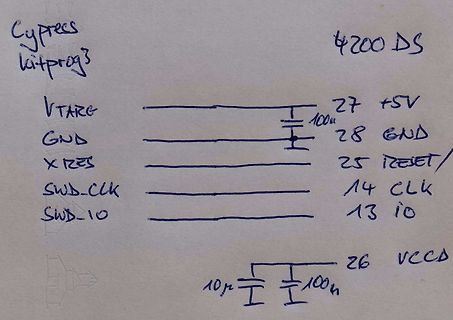 Cypress
kitprog3
4200 DS
VTARG 27 +5V
100n
GND 28 GND
XRES 25 RESET/
SWD_CLK 14 CLK
SWD_IO 13 IO
26 VCCD
10µ 100n